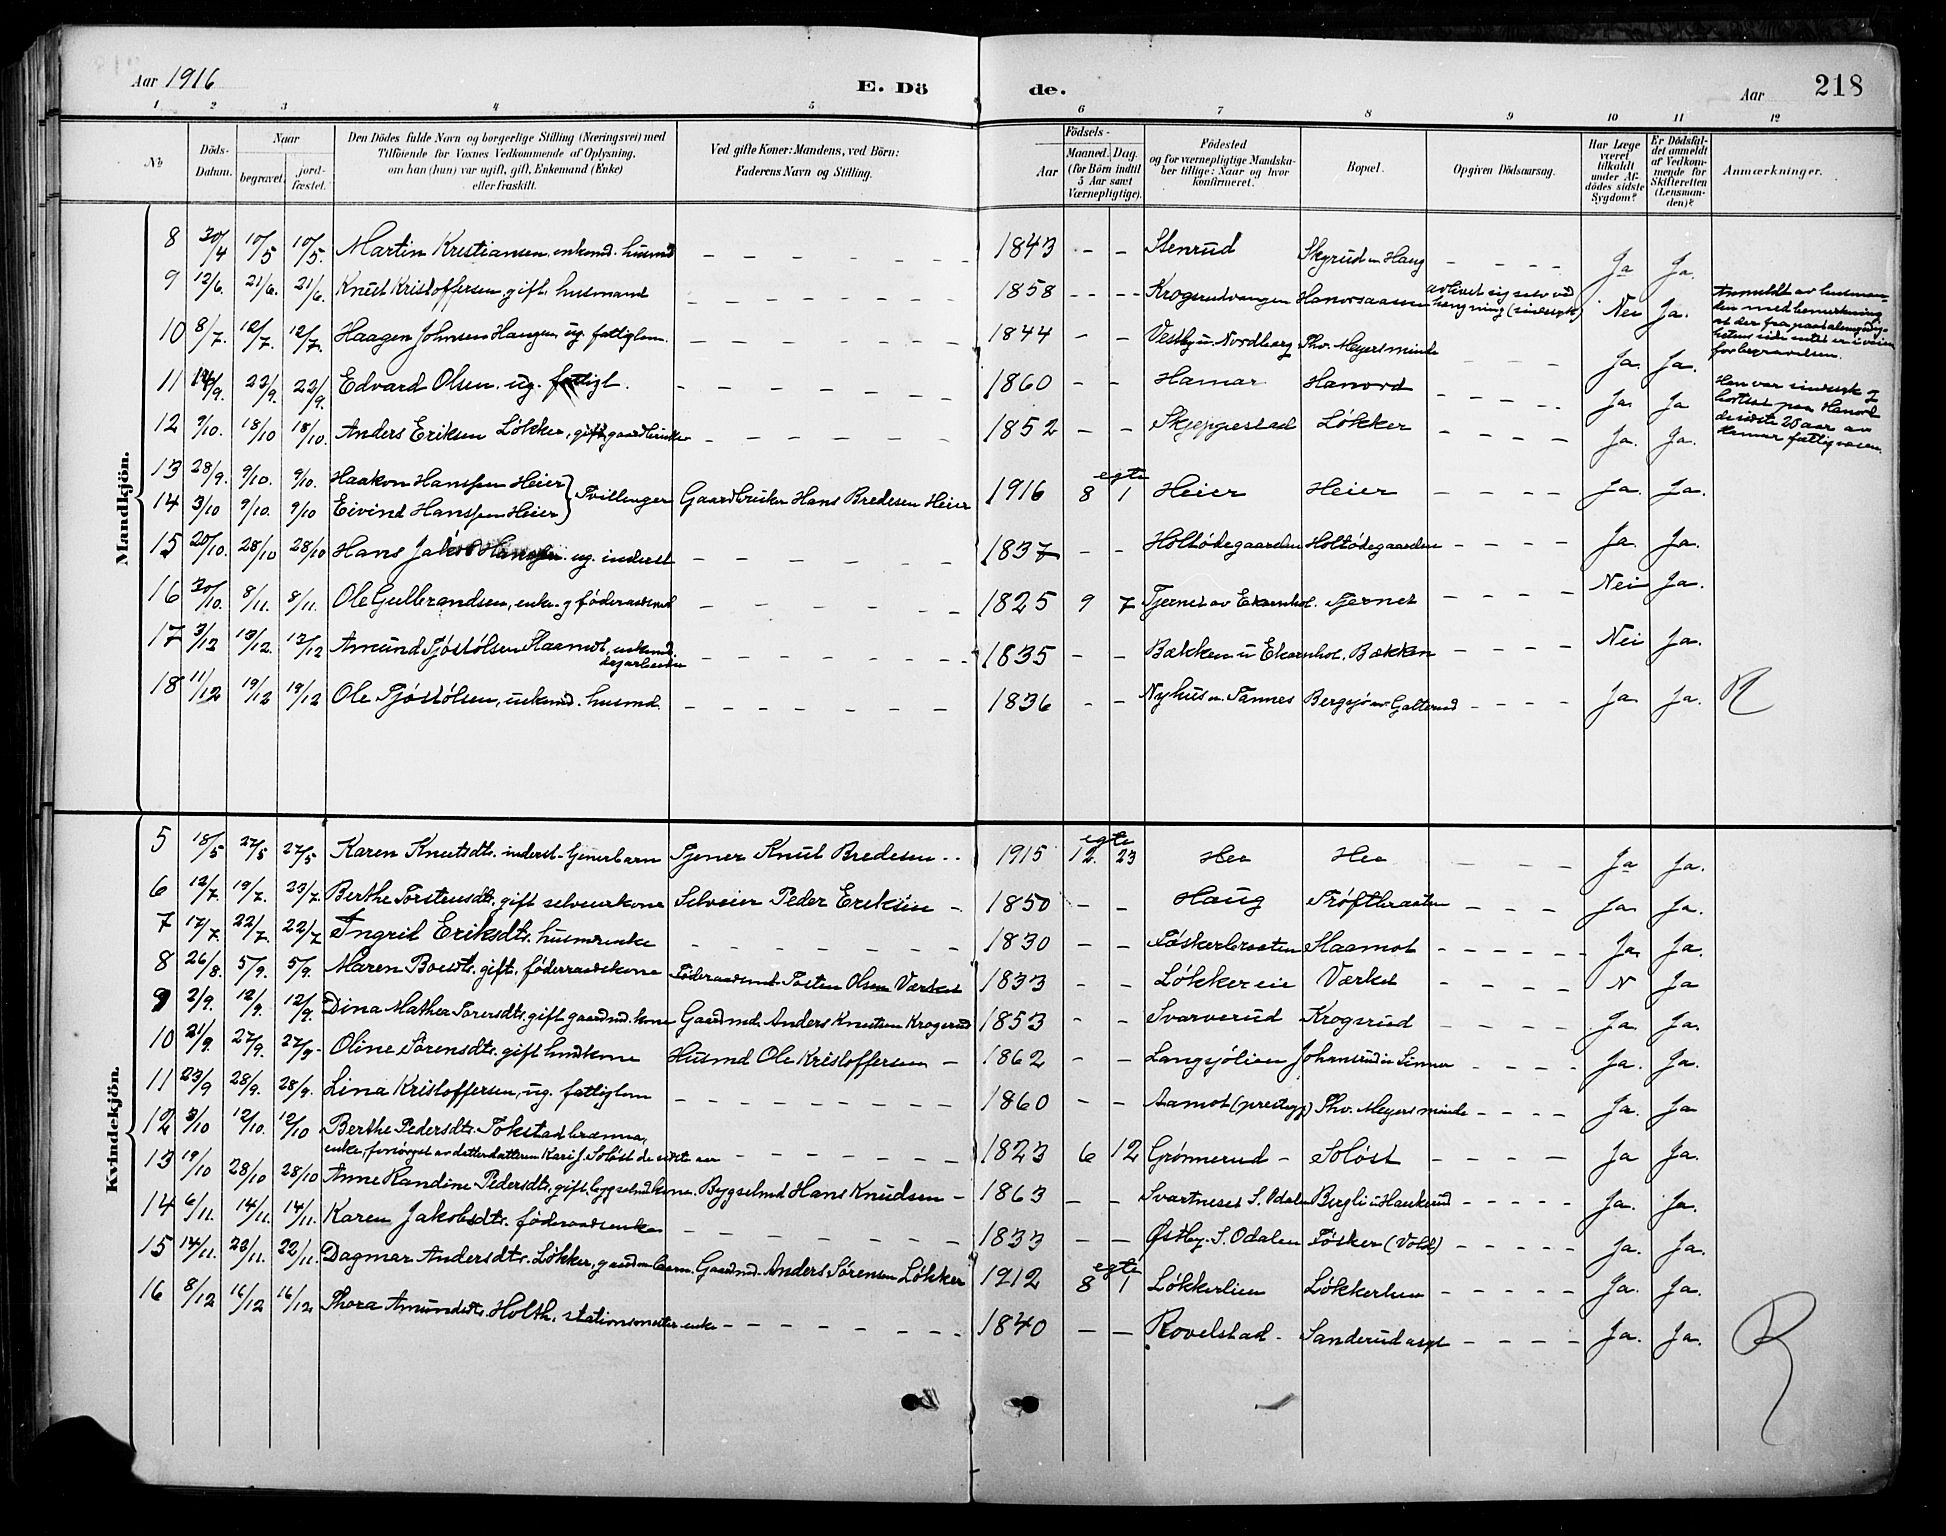 Aar 1916 E. Döde. Aar 218
1 2 3 4 5 6 7 8 9 10 11 12
No
Döds-Datum.
Naar
begravet.
jord-fæstet.
Den Dödes fulde Navn og borgerlige Stilling (Næringsvei) med
Tilföiende for Voxnes Vedkommende af Oplysning,
om han (hun) var ugift, gift, Enkemand (Enke)
eller fraskilt.
Ved gifte Koner: Mandens, ved Börn:
Faderens Navn og Stilling.
Födsels-
Aar
Maaned. Dag.
(for Börn indtil
5 Aar samt
Værnepligtige).
Födested
og for værnepligtige Mandska-
ber tillige: Naar og hvor
konfirmeret.
Bopæl.
Opgiven Dödsaarsag.
Har Læge
været
tilkaldt
under Af-
dödes sidste
Sygdom?
Er Dödsfal-
det anmeldt
af Vedkom-
mende for
Skifteretten
(Lensman-
den)?
Anmærkninger.
Mandkjön.
8 30/4 10/5 10/5 Martin Kristiansen, enkemd. husmd — 1843 - - Stenrud Skyrud u Haug — Ja Ja.
9 12/6. 21/6. 21/6. Knut Kristoffersen, gift husmand — 1858 - - Krogsrudvangen Hanorsaasen avlivet sig selv ved hengning (sindssyk) Nei Ja. Anmeldt av lensman-
den med bemerkning
at der fra paatalemyndig-
hetens side intet er iveien
for begravelsen.
10 8/7. 12/7. 12/7. Haagen Johnsen Haugen ug. fattiglem. — 1844 - - Vestby u. Nordberg Thv. Meyers minde — Ja. Ja.
11 14/9. 22/9. 22/9. Edvard Olsen. ug. fattigl. — 1860 - - Hamar Hanord — Ja. Ja Han var sindssyk og
bortsat paa Hanord
de sidste 20 aar av
Hamar fattigvæsen.
12 9/10. 18/10 18/10. Anders Eriksen Løkker, gift gaardbruker — 1852 - - Skjeppestad Løkker — Ja. Ja.
13 28/9. 9/10. 9/10. Haakon Hanssen Heier } Tvillinger Gaardbruker Hans Bredesen Heier 1916 egte 8 1 Heier Heier — Ja. Ja.
14 3/10 9/10. 9/10 Eivind Hanssen Heier
15 20/10. 28/10 28/10 Hans Jakob Hansen ug. inderst — 1837 - - Holtødegaarden Holtødegaarden — Ja. Ja.
16 30/10. 8/11. 8/11. Ole Gulbrandsen, enke- og føderaadsmd — 1825 9 7 Tjernet av Ekornhol. Tjernet — Nei Ja.
17 3/12 13/12. 13/12 Amund Tjøstølsen Haamot, enkemd. dagarbeider — 1835 - - Bækken u Ekornhol. Bækken — Nei Ja.
18 11/12 19/12 19/12 Ole Tjøstølsen, enkemd. husmd. — 1836 - - Nyhus u. Tannes Bergsjø av Galterud — Ja Ja. R
Kvindekjön.
5 18/5 27/5 27/5 Karen Knutsdtr. inderst-tjenerbarn Tjener Knut Bredesen 1915 egte 12. 23 Hee Hee — Ja Ja.
6 12/7. 19/7. 23/7. Berthe Torstensdtr. gift selveierkone Selveier Peder Eriksen 1850 - - Haug Trøftbraaten — Ja. Ja.
7 17/7. 22/7. 22/7 Ingrid Eriksdtr. husmdsenke — 1830 - - Føskerbraaten Haamot — Ja. Ja.
8 26/8. 5/9. 5/9. Maren Boesdtr. gift, føderaadskone Føderaadsmd. Tosten Olsen Værket 1833 - - Løkker eie Værket — N Ja
9 2/9. 12/9. 12/9. Dina Mathea Torersdtr. gift gaardmd. kone Gaardmd. Anders Knutsen Krogsrud 1853 - - Svarverud Krogsrud — Ja. Ja.
10 21/9. 27/9. 27/9- Oline Sørensdtr. gift husmdkone Husmd Ole Kristoffersen 1862 - - Langsjølien Johnsrud u Sinner — Ja. Ja.
11 23/9 28/9. 28/9. Lina Kristoffersen, ug. fattiglem — 1860 - - Aamot (prestegj) Thv. Meyers minde — Ja. Ja
12 3/10 12/10. 12/10 Berthe Pedersdtr. Tokstadbrænna,
enke, forsørget av datterdatteren Kari J. Soløst de sidste aar — 1823 6 12 Grønnerud Soløst — Ja Ja.
13 19/10 28/10 28/10 Anne Randine Pedersdtr, gift bygselmdkone. Bygselmd Hans Knudsen 1863 - - Svartneset S. Odalen Bergli u Haukerud — Ja. Ja.
14 6/11. 14/11. 14/11. Karen Jakobsdtr. føderaadsenke — 1833 - - Østby. S. Odalen Føsker (Vold) — Ja. Ja.
15 14/11. 23/11. 22/11. Dagmar Andersdtr. Løkker, gaardm barn. Gaardmd. Anders Sørensen Løkker 1912 egte 8 1 Løkkerlien Løkkerlien — Ja. Ja.
16 8/12 16/12 16/12 Thora Amundsdtr. Holth. stationsmester enke — 1840 - - Rovelstad Sanderud asyl — Ja. Ja. R